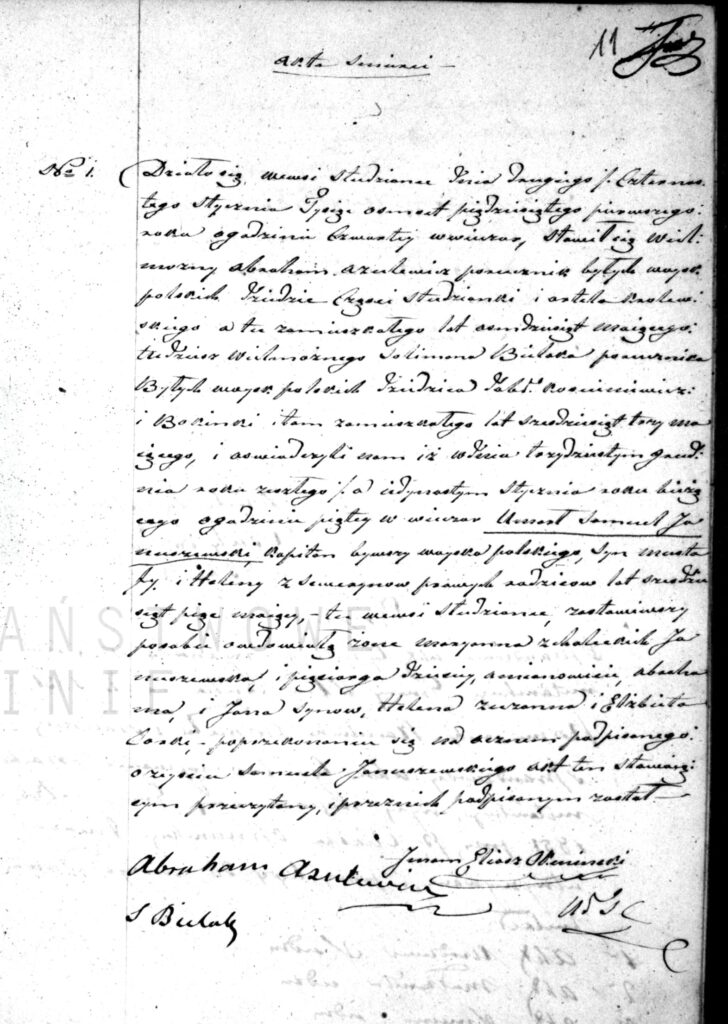 11
akta smierci
No 1. Działo się wewsi Studziance Dnia Drugiego /. Czternas-
tego Stycznia Tysiąc osmset pięćdziesiątego pierwszego
roku ogodzinie Czwartej wwieczor, stawił się Wiel
możny Abraham Azulewicz porucznik byłych woysk
polskich Dziedzic Częsci Studzianki i ortela Krolew
skiego a tu zamieszkałego lat osmdziesiąt maiącego
tudziesz wielmożnego Solimana Bielaka porucznika
Byłych woysk polskich Dziedzica Dóbr Koscieniewicz
i Bokinki i tam zamieszkałego lat szesdziesiąt trzy ma
iącego, i oswiadczyli nam iż wdniu trzydziestym grud
nia roku zeszłego /. a iedynastym Stycznia roku bieżą
cego ogodzinie piątey w wieczor Umarł Samuel Ja
nuszewski, kapitan bywszy woyska polskiego, syn Musta
fy i Heleny z Sewerynow prawych rodzicow lat szesdzie
siąt pięć maiący, - tu wewsi Studziance, zostawiwszy
posobie owdowiałą żone Maryanna zChaleckich Ja
nuszewską, i pięcioro Dzieciy, amianowicie, Abraha
ma, i Jana synow, Helena Zuzanna i Elżbieta
Corki, - poprzekonaniu się na ocznem podpisanego
ozeysciu Samuela Januszewskiego akt ten stawaią
cym przeczytany, i przeznich podpisanym został
Abraham Azulewicz
Imam Eliasz
S Bielak